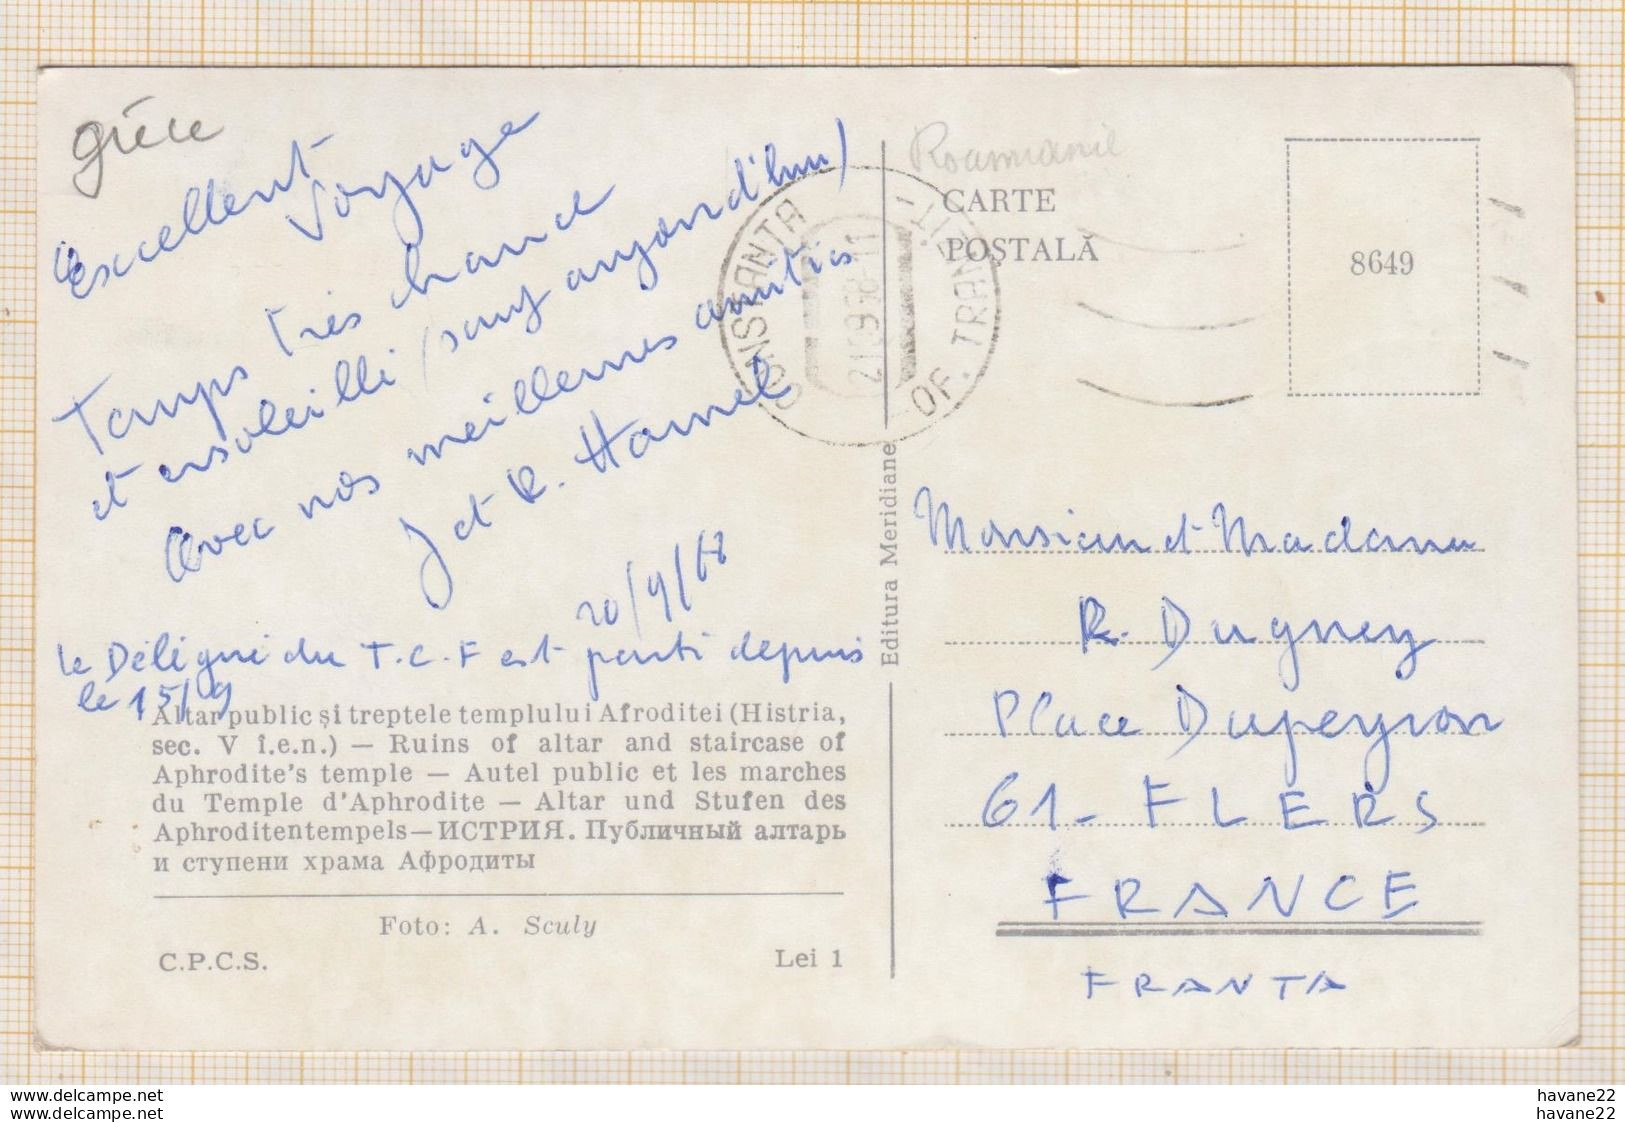 grèce
Excellent
Voyage
Temps très chaud
et ensoleillé (sauf aujourd'hui)
Avec nos meilleures amitiés
J et R. Hamel
20/9/68
Le Délégué du T.C.F est parti depuis
le 15/9
Altar public și treptele templului Afroditei (Histria,
sec. V î.e.n.) — Ruins of altar and staircase of
Aphrodite's temple — Autel public et les marches
du Temple d'Aphrodite — Altar und Stufen des
Aphroditentempels — ИСТРИЯ. Публичный алтарь
и ступени храма Афродиты
Foto: A. Sculy
C.P.C.S.
Lei 1
Editura Meridiane
Roumanie
CARTE
POȘTALĂ
CONSTANTA
OF. TRANZIT
8649
Monsieur et Madame
R. Dugney
Place Dupeyron
61- FLERS
FRANCE
FRANTA
havane22
havane22
havane22
havane22